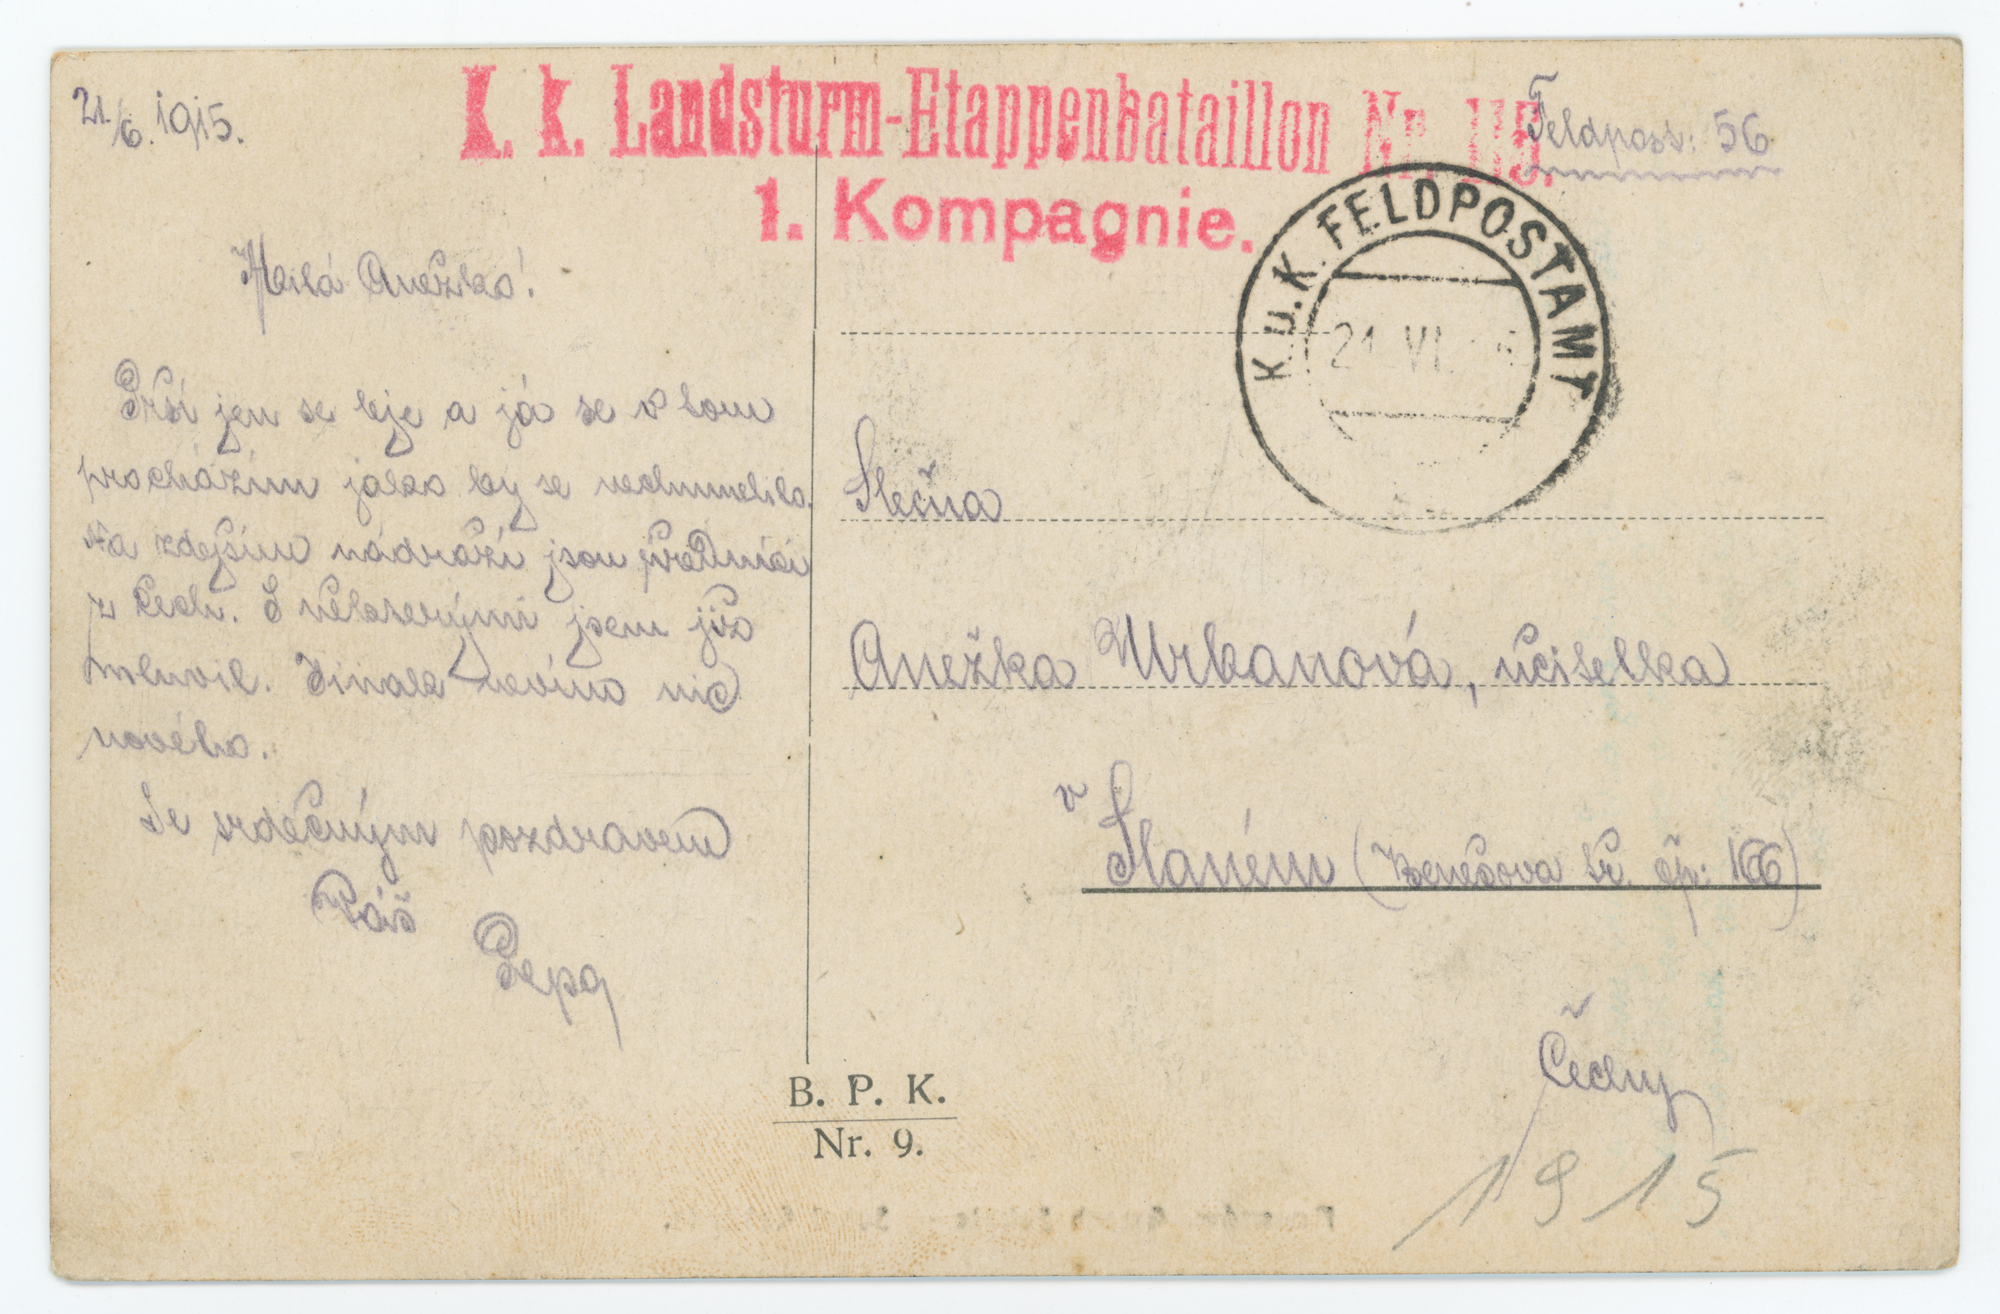 21./6. 1915.
K. k. Landsturm-Etappenbataillon Nr. 115.
1. Kompagnie.
Feldpost: 56
K. u. K. FELDPOSTAMT
21 VI 15
Milá Anežko!
Prší jen se lije a já se v tom
procházím jako by se nechumelilo.
Na zdejším nádraží jsou
z Čech. S některými jsem již
mluvil. Jinak nevím nic
nového.
Se srdečným pozdravem
Váš
Pepa
Slečna
Anežka Urbanová, učitelka
v Slaném (Benešova tř. čp: 166)
Čechy
1915
B. P. K.
Nr. 9.